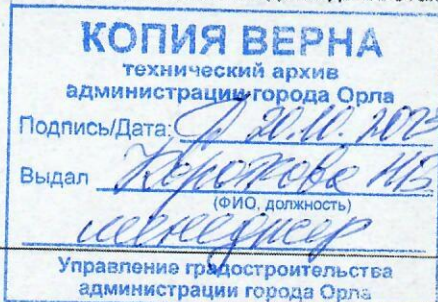 КОПИЯ ВЕРНА
технический архив
администрации города Орла
Подпись/Дата: 20.10.2023
Выдал
(ФИО, должность)
менеджер
Управление градостроительства
администрации города Орла